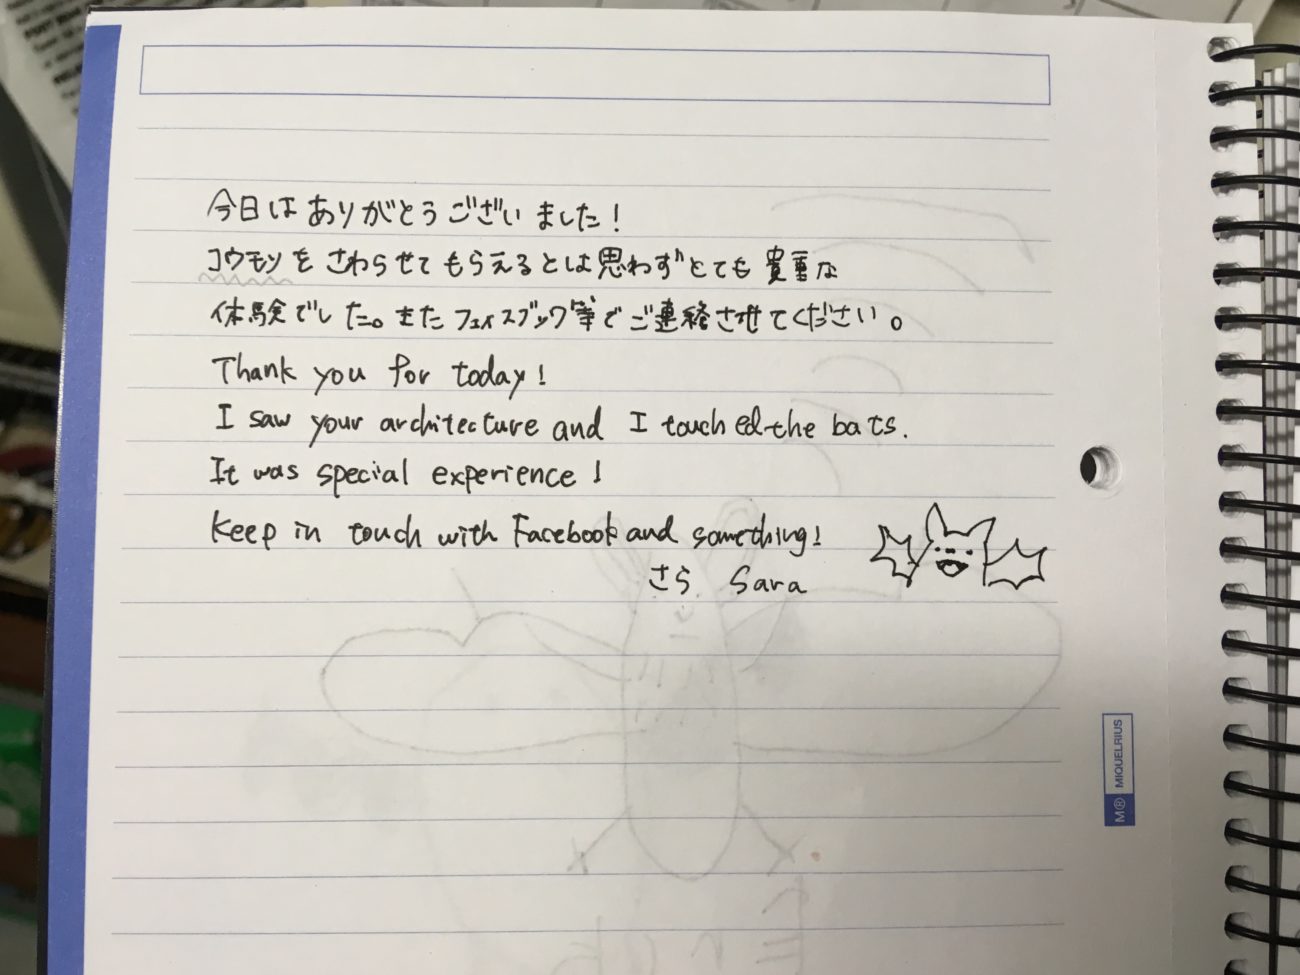 今日はありがとうございました！
コウモリをさわらせてもらえるとは思わずとても貴重な
体験でした。またフェイスブック等でご連絡させてください。
Thank you for today!
I saw your architecture and I touched the bats.
It was special experience!
Keep in touch with Facebook and something!
さら Sara
M® MIQUELRIUS